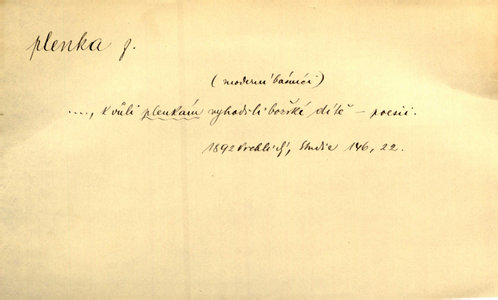 plenka f.
(moderní básníci)
...., kvůli plenkám vyhodili božské dítě – poesii.
1892 Vrchlický, Studie 146, 22.